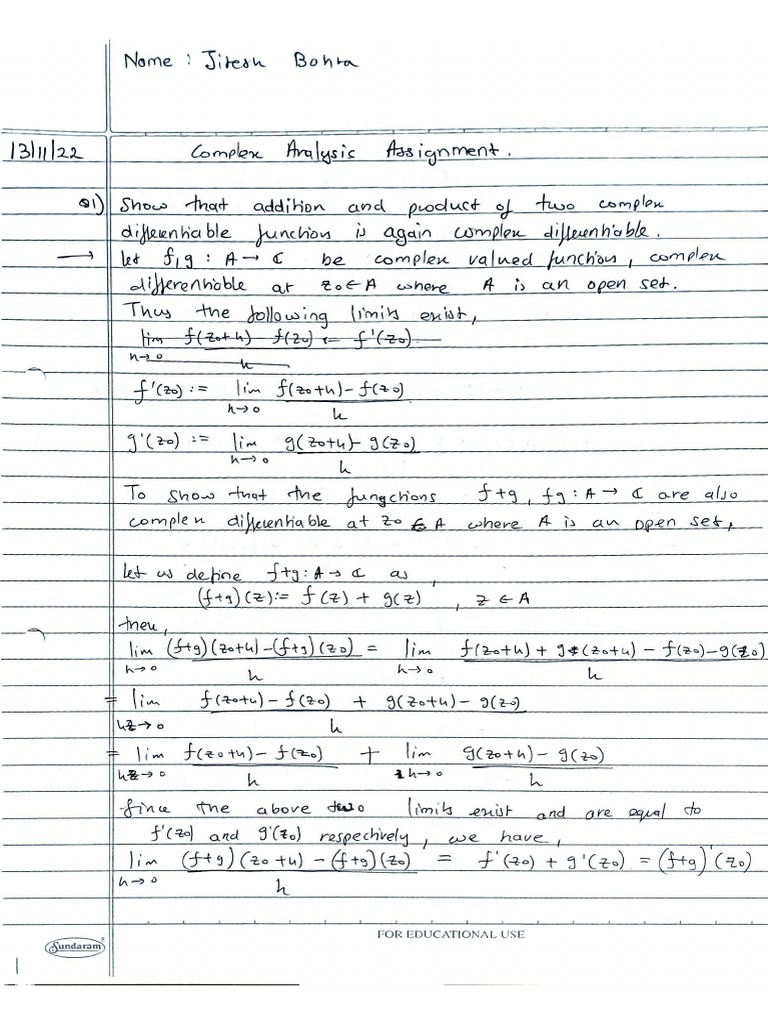 Name : Jitesh Bohra
13/11/22 Complex Analysis Assignment.
Q1) Show that addition and product of two complex
differentiable function is again complex differentiable.
→ let f,g : A → ℂ be complex valued function, complex
differentiable at z₀ ∈ A where A is an open set.
Thus the following limits exist,
lim h→0 f(z₀+h) - f(z₀) / h = f'(z₀)
f'(z₀) := lim h→0 f(z₀+h) - f(z₀) / h
g'(z₀) := lim h→0 g(z₀+h) - g(z₀) / h
To show that the fungctions f+g, fg : A → ℂ are also
complex differentiable at z₀ ∈ A where A is an open set,
let us define f+g : A → ℂ as,
(f+g)(z) := f(z) + g(z) , z ∈ A
then,
lim h→0 (f+g)(z₀+h) - (f+g)(z₀) / h = lim h→0 f(z₀+h) + g(z₀+h) - f(z₀) - g(z₀) / h
= lim h→0 f(z₀+h) - f(z₀) + g(z₀+h) - g(z₀) / h
= lim h→0 f(z₀+h) - f(z₀) / h + lim h→0 g(z₀+h) - g(z₀) / h
Since the above two limits exist and are equal to
f'(z₀) and g'(z₀) respectively, we have,
lim h→0 (f+g)(z₀+h) - (f+g)(z₀) / h = f'(z₀) + g'(z₀) = (f+g)'(z₀)
Sundaram
FOR EDUCATIONAL USE
1